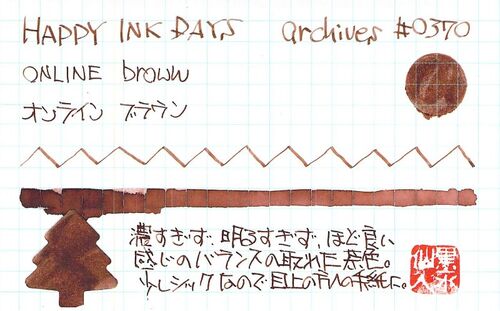 HAPPY INK DAYS archives #0370
ONLINE brown
オンライン ブラウン
濃すぎず、明るすぎず、ほど良い
感じのバランスの取れた茶色。
少しシックなので目上の方への手紙に。